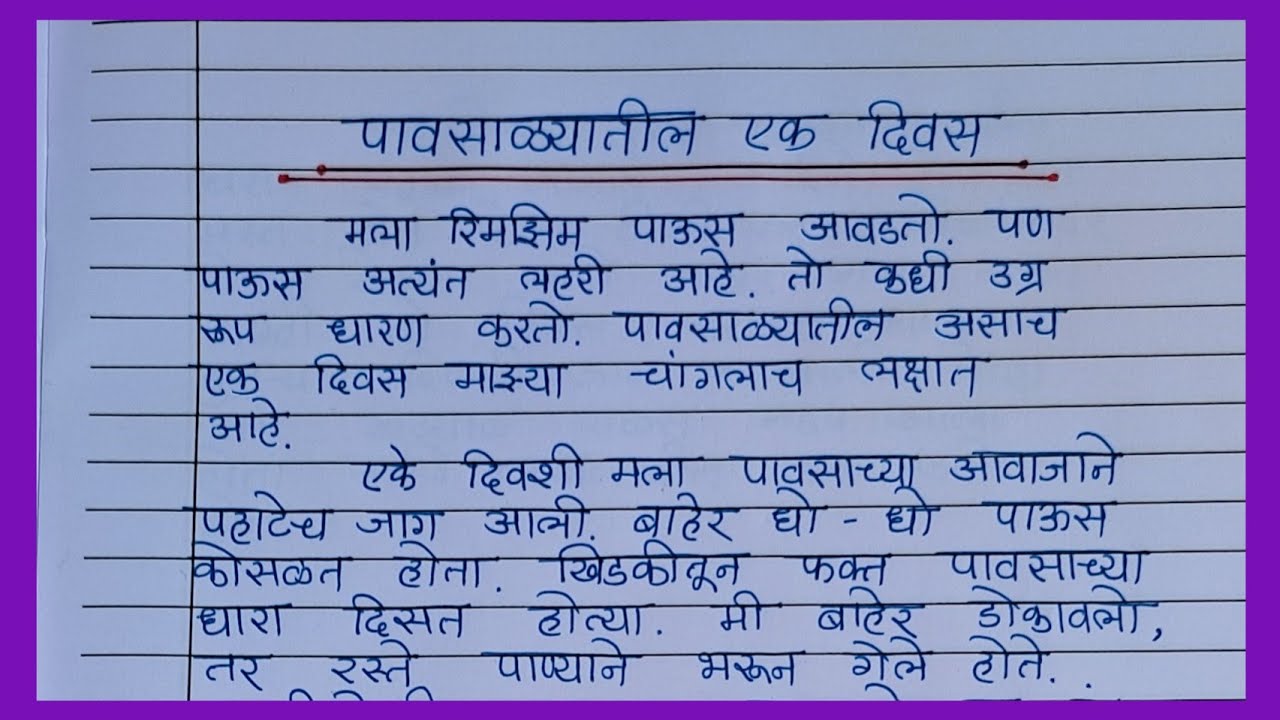 पावसाळ्यातील एक दिवस
मला रिमझिम पाऊस आवडतो. पण
पाऊस अत्यंत लहरी आहे. तो कधी उग्र
रूप धारण करतो. पावसाळ्यातील असाच
एक दिवस माझ्या चांगलाच लक्षात
आहे.
एके दिवशी मला पावसाच्या आवाजाने
पहाटेच जाग आली. बाहेर धो - धो पाऊस
कोसळत होता. खिडकीतून फक्त पावसाच्या
धारा दिसत होत्या. मी बाहेर डोकावलो,
तर रस्ते पाण्याने भरून गेले होते.